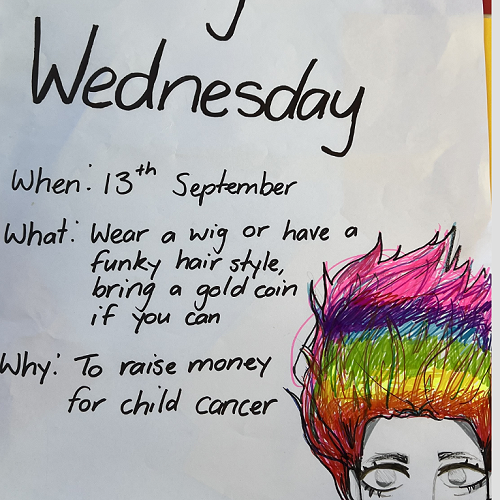 Wednesday
When: 13th September
What: Wear a wig or have a
funky hair style,
bring a gold coin
if you can
Why: To raise money
for child cancer